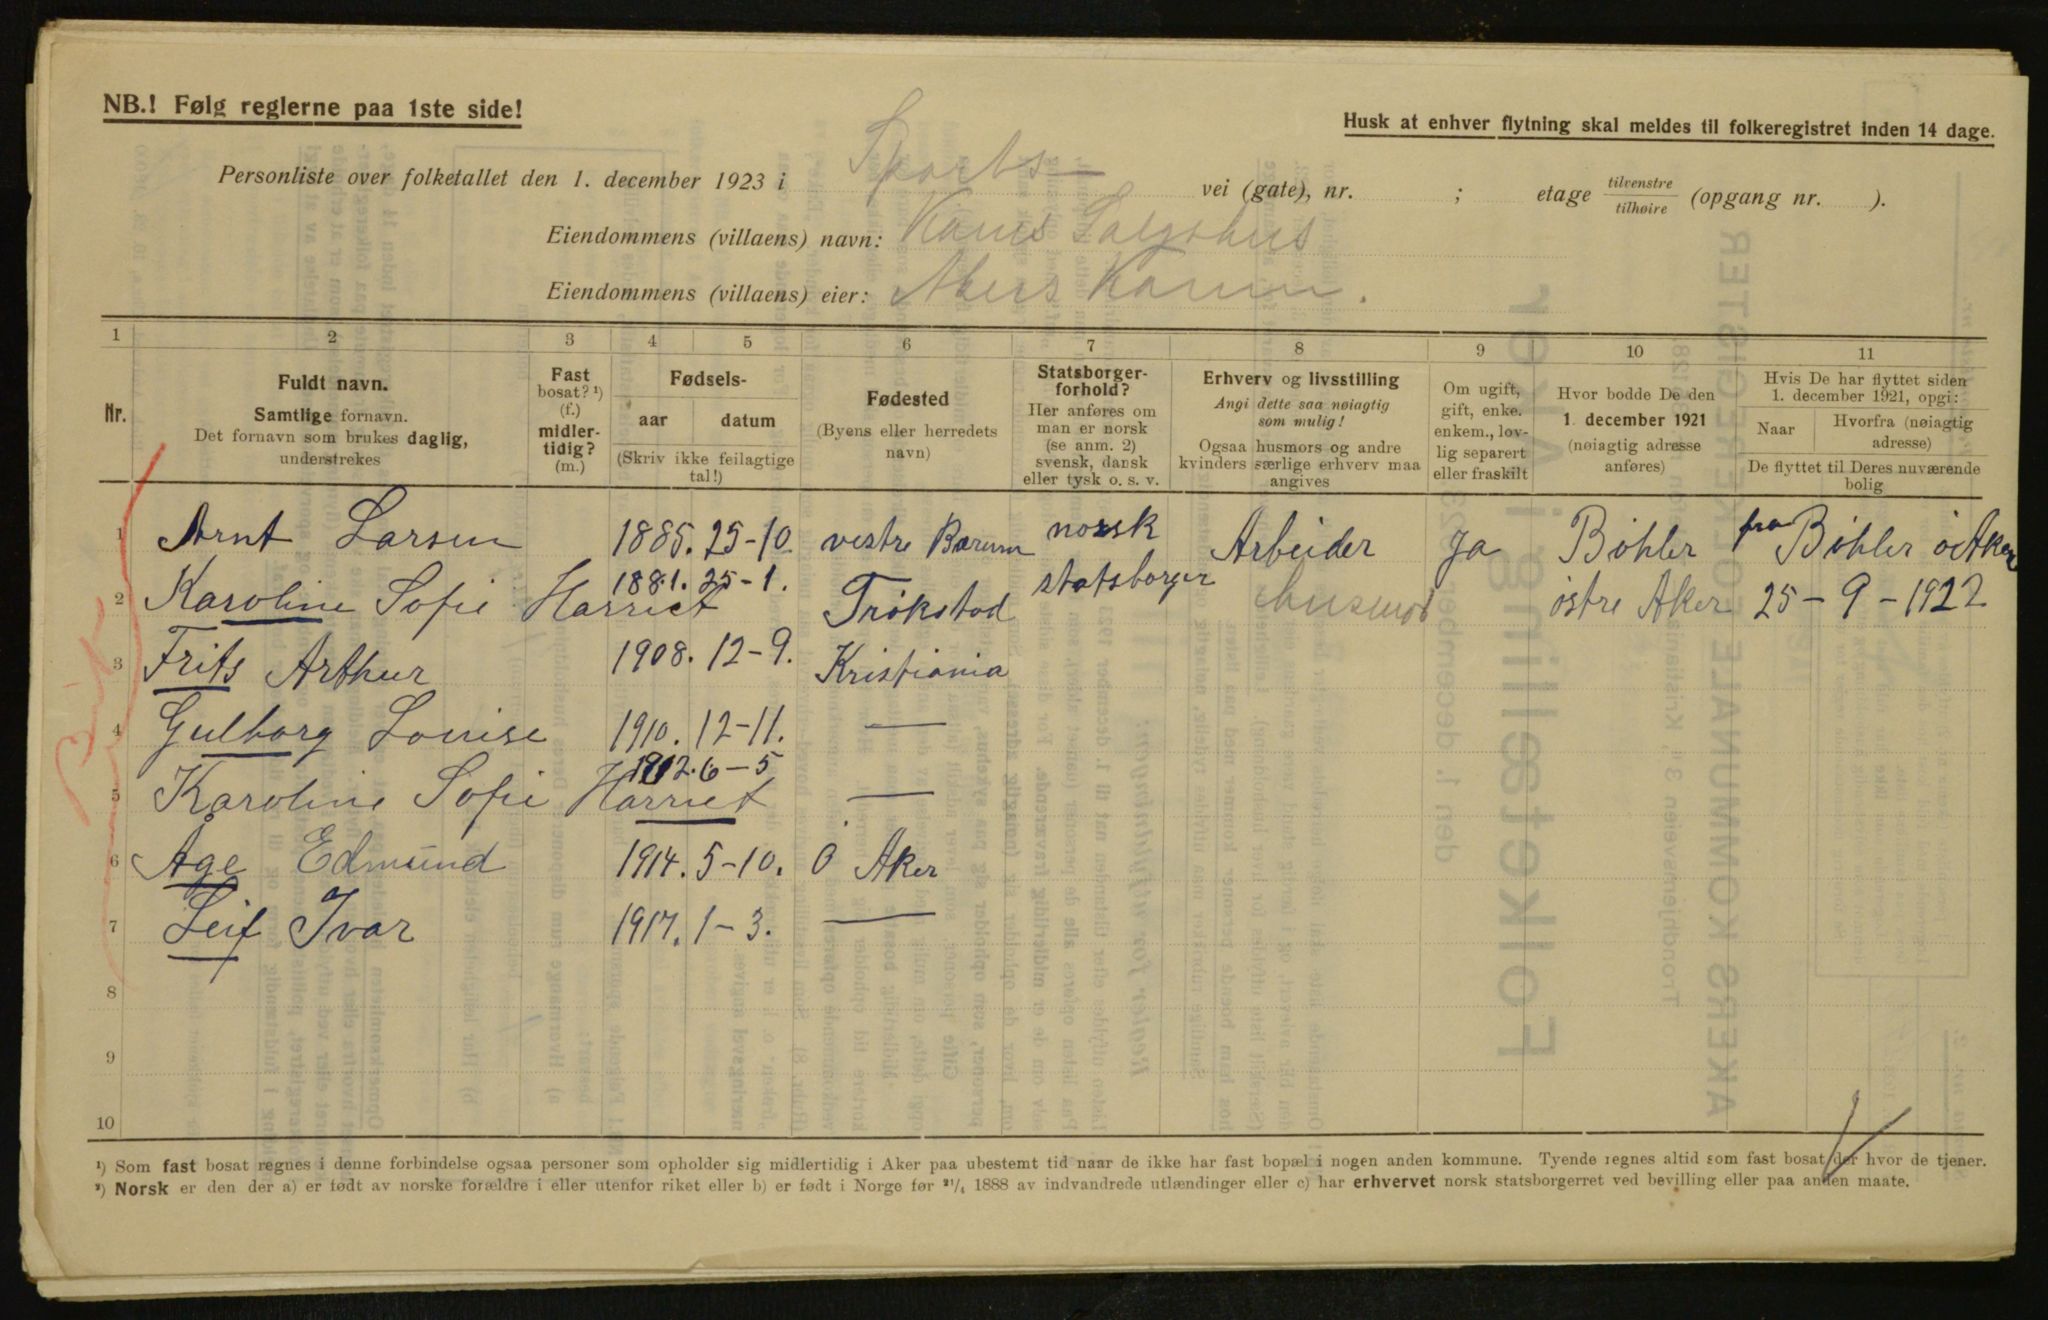 NB.! Følg reglerne paa 1ste side!
Husk at enhver flytning skal meldes til folkeregistret inden 14 dage.
Personliste over folketallet den 1. december 1923 i Sports vei (gate), nr. ; etage tilvenstre tilhøire (opgang nr. ).
Eiendommens (villaens) navn:
Eiendommens (villaens) eier: Akers Komm.
1 2 3 4 5 6 7 8 9 10 11
Nr.
Fuldt navn.
Samtlige fornavn.
Det fornavn som brukes daglig,
understrekes
Fast
bosat? ¹)
(f.)
midler-
tidig?
(m.)
Fødsels-
aar datum
(Skriv ikke feilagtige
tal!)
Fødested
(Byens eller herredets
navn)
Statsborger-
forhold?
Her anføres om
man er norsk
(se anm. 2)
svensk, dansk
eller tysk o. s. v.
Erhverv og livsstilling
Angi dette saa nøiagtig
som mulig!
Ogsaa husmors og andre
kvinders særlige erhverv maa
angives
Om ugift,
gift, enke.
enkem., lov-
lig separert
eller fraskilt
Hvor bodde De den
1. december 1921
(nøiagtig adresse
anføres)
Hvis De har flyttet siden
1. december 1921, opgi:
Naar Hvorfra (nøiagtig
adresse)
De flyttet til Deres nuværende
bolig
1 Arnt Larsen 1885. 25-10. vestre Bærum norsk Arbeider Ja Bøhler fra Bøhler ø Aker
2 Karoline Sofie Harriet 1881. 25-1. Trøkstad statsborger husmor østre Aker 25-9-1922
3 Frits Arthur 1908. 12-9. Kristiania
4 Gulborg Louise 1910. 12-11. —
5 Karoline Sofie Harriet 1912. 6-5 —
6 Åge Edmund 1914. 5-10. Ø Aker
7 Leif Ivar 1917. 1-3. —
8
9
10
¹) Som fast bosat regnes i denne forbindelse ogsaa personer som opholder sig midlertidig i Aker paa ubestemt tid naar de ikke har fast bopæl i nogen anden kommune. Tyende regnes altid som fast bosat der hvor de tjener.
²) Norsk er den der a) er født av norske forældre i eller utenfor riket eller b) er født i Norge før ²¹/₄ 1888 av indvandrede utlændinger eller c) har erhvervet norsk statsborgerret ved bevilling eller paa anden maate.